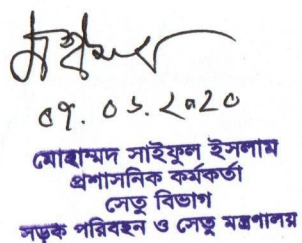 ০৭. ০১. ২০২০
মোহাম্মদ সাইফুল ইসলাম
প্রশাসনিক কর্মকর্তা
সেতু বিভাগ
সড়ক পরিবহন ও সেতু মন্ত্রণালয়